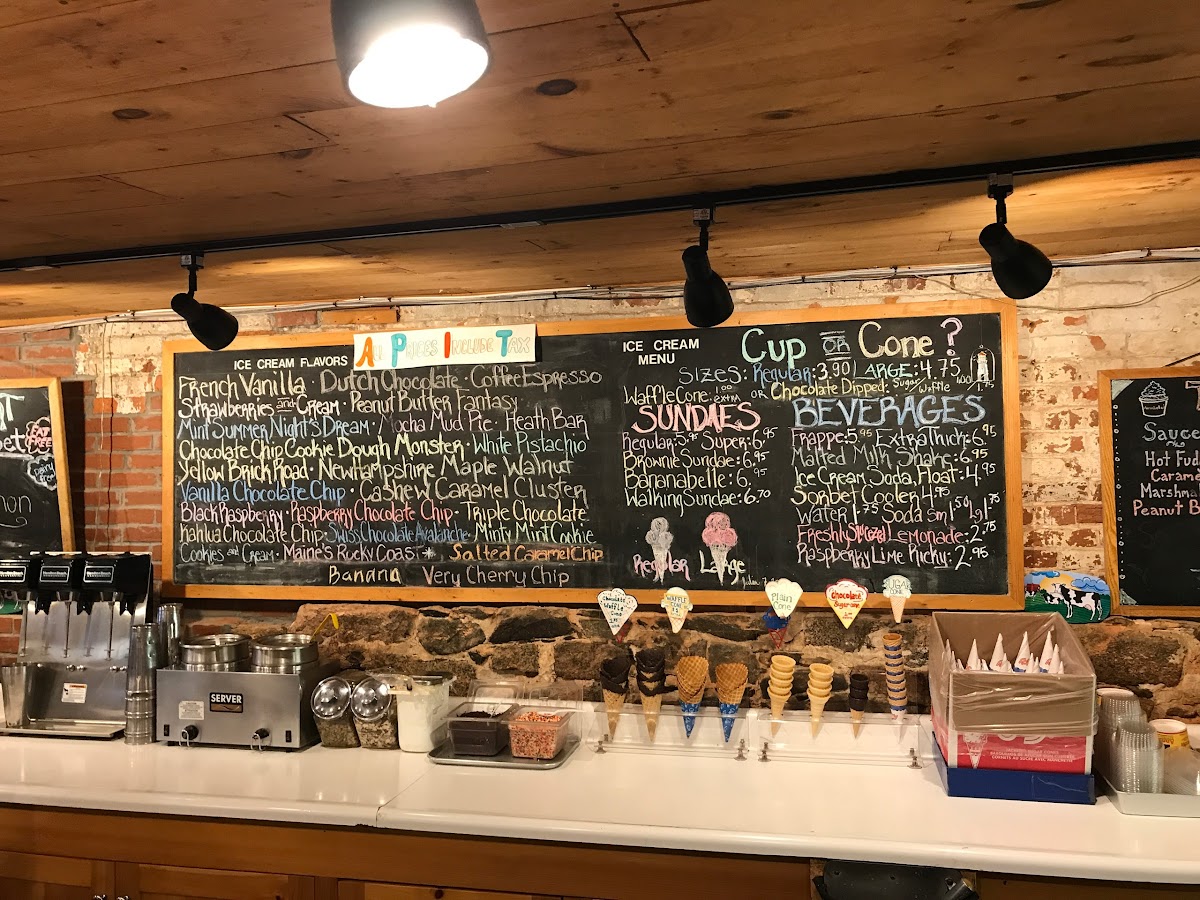 ICE CREAM FLAVORS
All Prices Include Tax
French Vanilla · Dutch Chocolate · Coffee Espresso
Strawberries and Cream · Peanut Butter Fantasy
Mint Summer Night's Dream · Mocha Mud Pie · Heath Bar
Chocolate Chip Cookie Dough Monster · White Pistachio
Yellow Brick Road · New Hampshire Maple Walnut
Vanilla Chocolate Chip · Cashew Caramel Cluster
Black Raspberry · Raspberry Chocolate Chip · Triple Chocolate
Kahlua Chocolate Chip · Swiss Chocolate Avalanche · Minty Mint Cookie
Cookies and Cream · Maine's Rocky Coast* Salted Caramel Chip
Banana Very Cherry Chip
ICE CREAM
MENU
Cup OR Cone?
SIZES: Regular: 3.90 LARGE: 4.75
Waffle Cone: 1.00 extra
OR Chocolate Dipped: Sugar Waffle 1.75
SUNDAES
Regular: 5.95 Super: 6.95
Brownie Sundae: 6.95
Bananabelle: 6.95
Walking Sundae: 6.70
Regular Large
BEVERAGES
Frappe: 5.95 Extra Thick: 6.95
Malted Milk Shake: 6.95
Ice Cream Soda, Float: 4.95
Sorbet Cooler 4.95
Water 1.75 Soda sm 1.50 lg 1.75
Freshly Squeezed Lemonade: 2.75
Raspberry Lime Ricky: 2.95
EAT
FREE
Dairy
Sauce
Hot Fud
Carame
Marshma
Peanut B
SERVER
chocolate
Waffle Cone
WAFFLE
CONE
Plain
Cone
chocolate
sugar cone
SUGAR
CONE